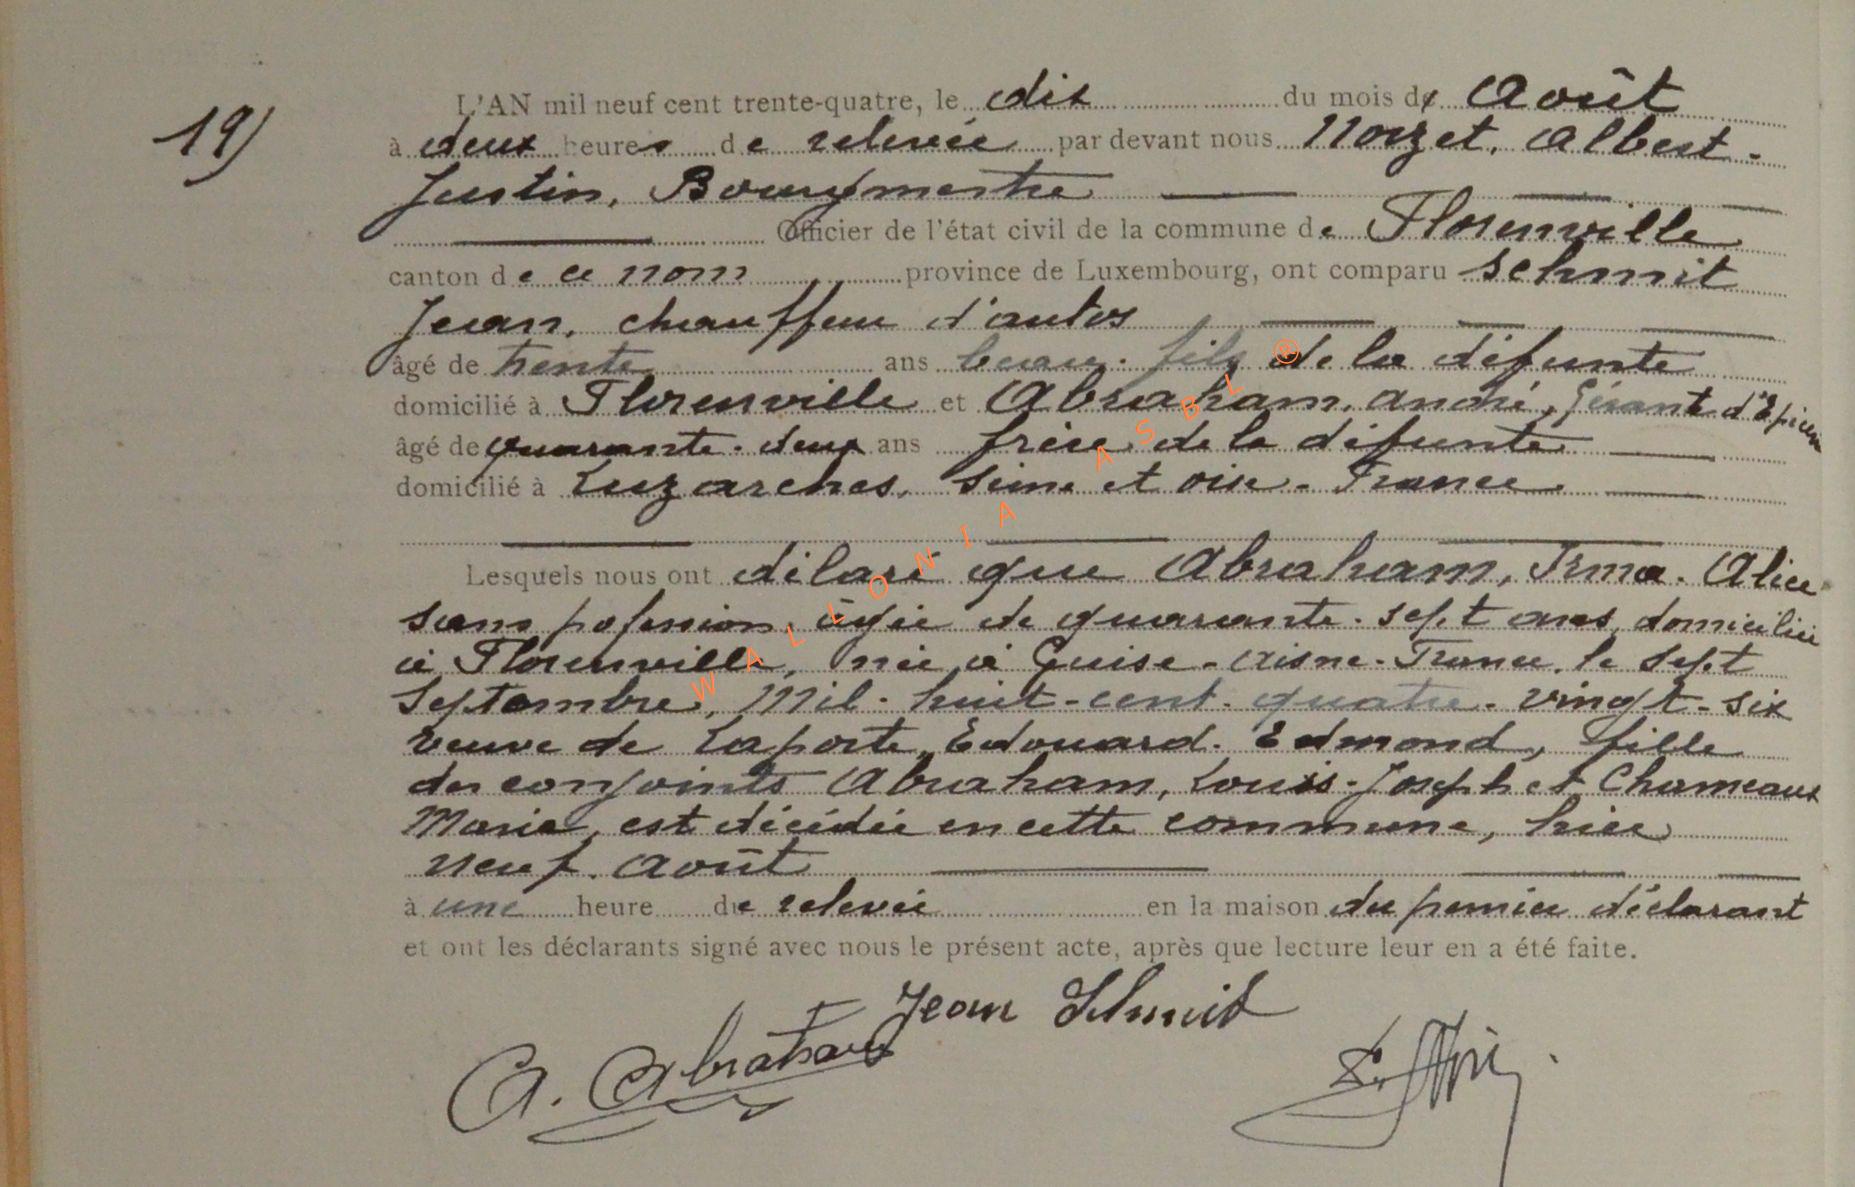 19)
L'AN mil neuf cent trente-quatre, le dix du mois de Août
à deux heures de relevée par devant nous Nozet, Albert-
Justin, Bourgmestre
Officier de l'état civil de la commune de Florenville
canton de ce nom province de Luxembourg, ont comparu Schmit
Jean, chauffeur d'autos
âgé de trente ans beau-fils de la défunte
domicilié à Florenville et Abraham, André, Gérant d'Epicerie
âgé de quarante-deux ans frère de la défunte
domicilié à Luzarches, Seine et Oise - France
Lesquels nous ont déclaré que Abraham, Irma-Alice
sans profession, âgée de quarante-sept ans, domiciliée
à Florenville, née à Guise-Aisne-France, le sept
Septembre, Mil-huit-cent-quatre-vingt-six
veuve de Laporte, Edouard-Edmond, fille
des conjoints Abraham, Louis-Joseph et Chameaux
Marie, est décédée en cette commune, hier
neuf Août
à une heure de relevée en la maison du premier déclarant
et ont les déclarants signé avec nous le présent acte, après que lecture leur en a été faite.
Jean Schmit
A. Abraham
WALLONIA ASBL ®